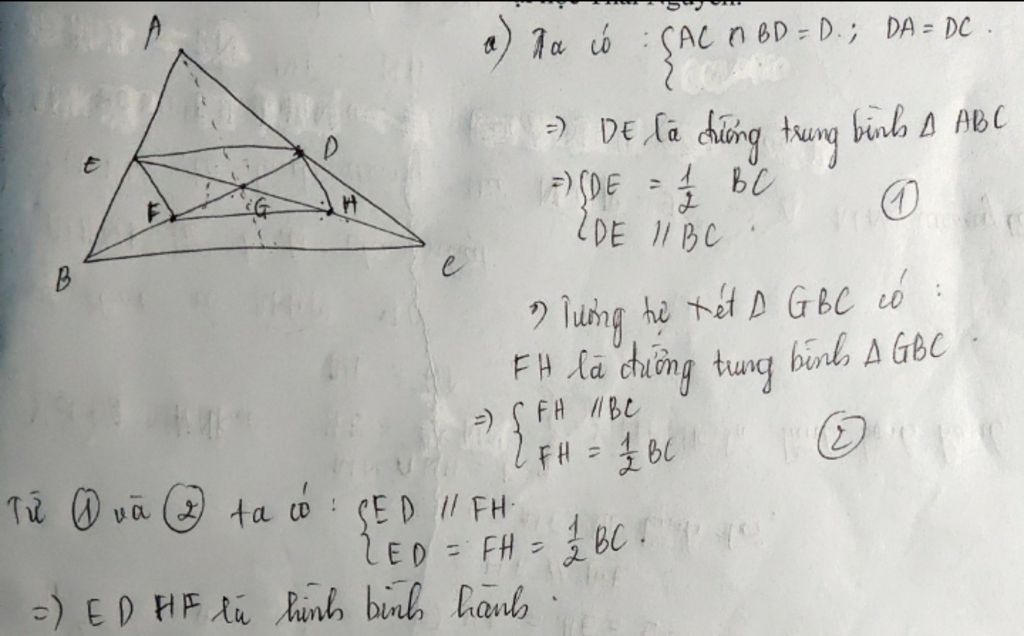 A
D
E
F
G
H
B
C
a) Ta có : { AC ∩ BD = D ; DA = DC .
=> DE là đường trung bình Δ ABC
=> { DE = 1/2 BC
DE // BC . ①
Tương tự xét Δ GBC có :
FH là đường trung bình Δ GBC .
=> { FH // BC
FH = 1/2 BC ②
Từ ① và ② ta có : { ED // FH .
ED = FH = 1/2 BC .
=> EDHF là hình bình hành .